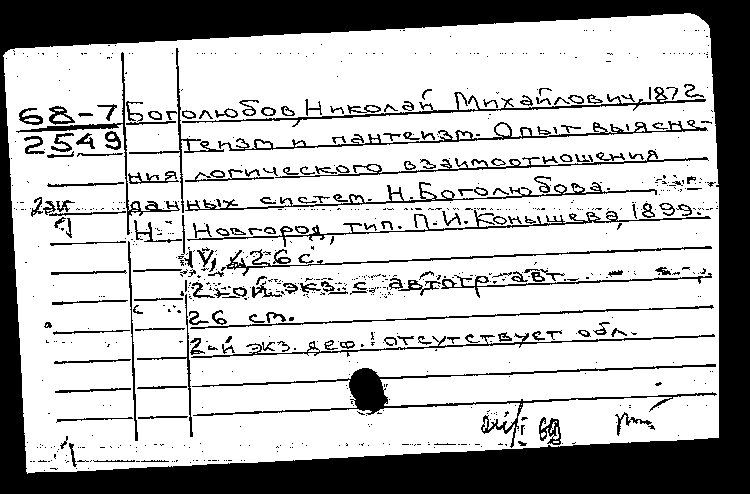 68-7 Боголюбов, Николай Михайлович, 1872
2549 Теизм и пантеизм. Опыт выясне-
ния логического взаимоотношения
данных систем. Н. Боголюбова.
2 экз
Н.- Новгород, тип. П.И. Конышева, 1899.
IV, 426 с.
2-ой экз. с автогр. авт.
26 см.
2-й экз. деф.: отсутствует обл.